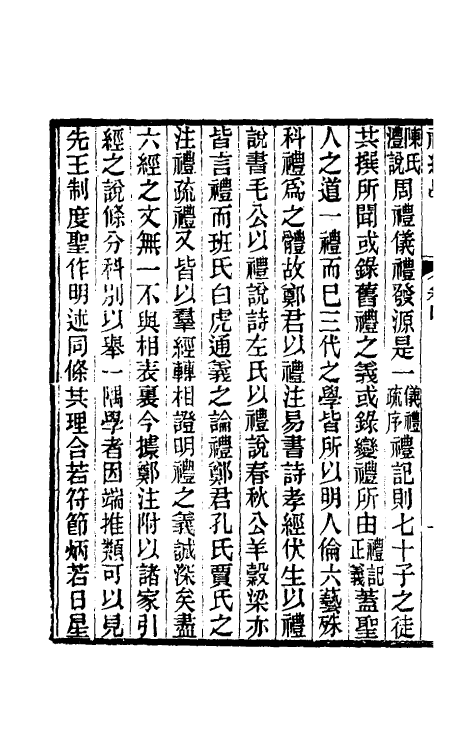 陳氏禮說周禮儀禮發源是一儀禮疏序禮記則七十子之徒
共撰所聞或錄舊禮之義或錄變禮所由禮記正義蓋聖
人之道一禮而已三代之學皆所以明人倫六藝殊
科禮爲之體故鄭君以禮注易書詩孝經伏生以禮
說書毛公以禮說詩左氏以禮說春秋公羊穀梁亦
皆言禮而班氏白虎通義之論禮鄭君孔氏賈氏之
注禮疏禮又皆以羣經轉相證明禮之義誠深矣盡
六經之文無一不與相表裏今摭鄭注附以諸家引
經之說條分科別以舉一隅學者因端推類可以見
先王制度聖作明述同條其理合若符節炳若日星